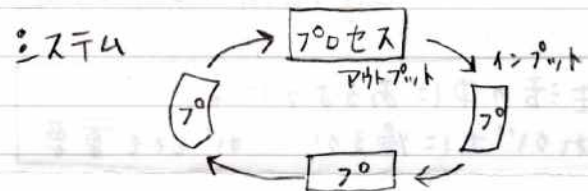 システム
プロセス
アウトプット
インプット
プ
プ
プ